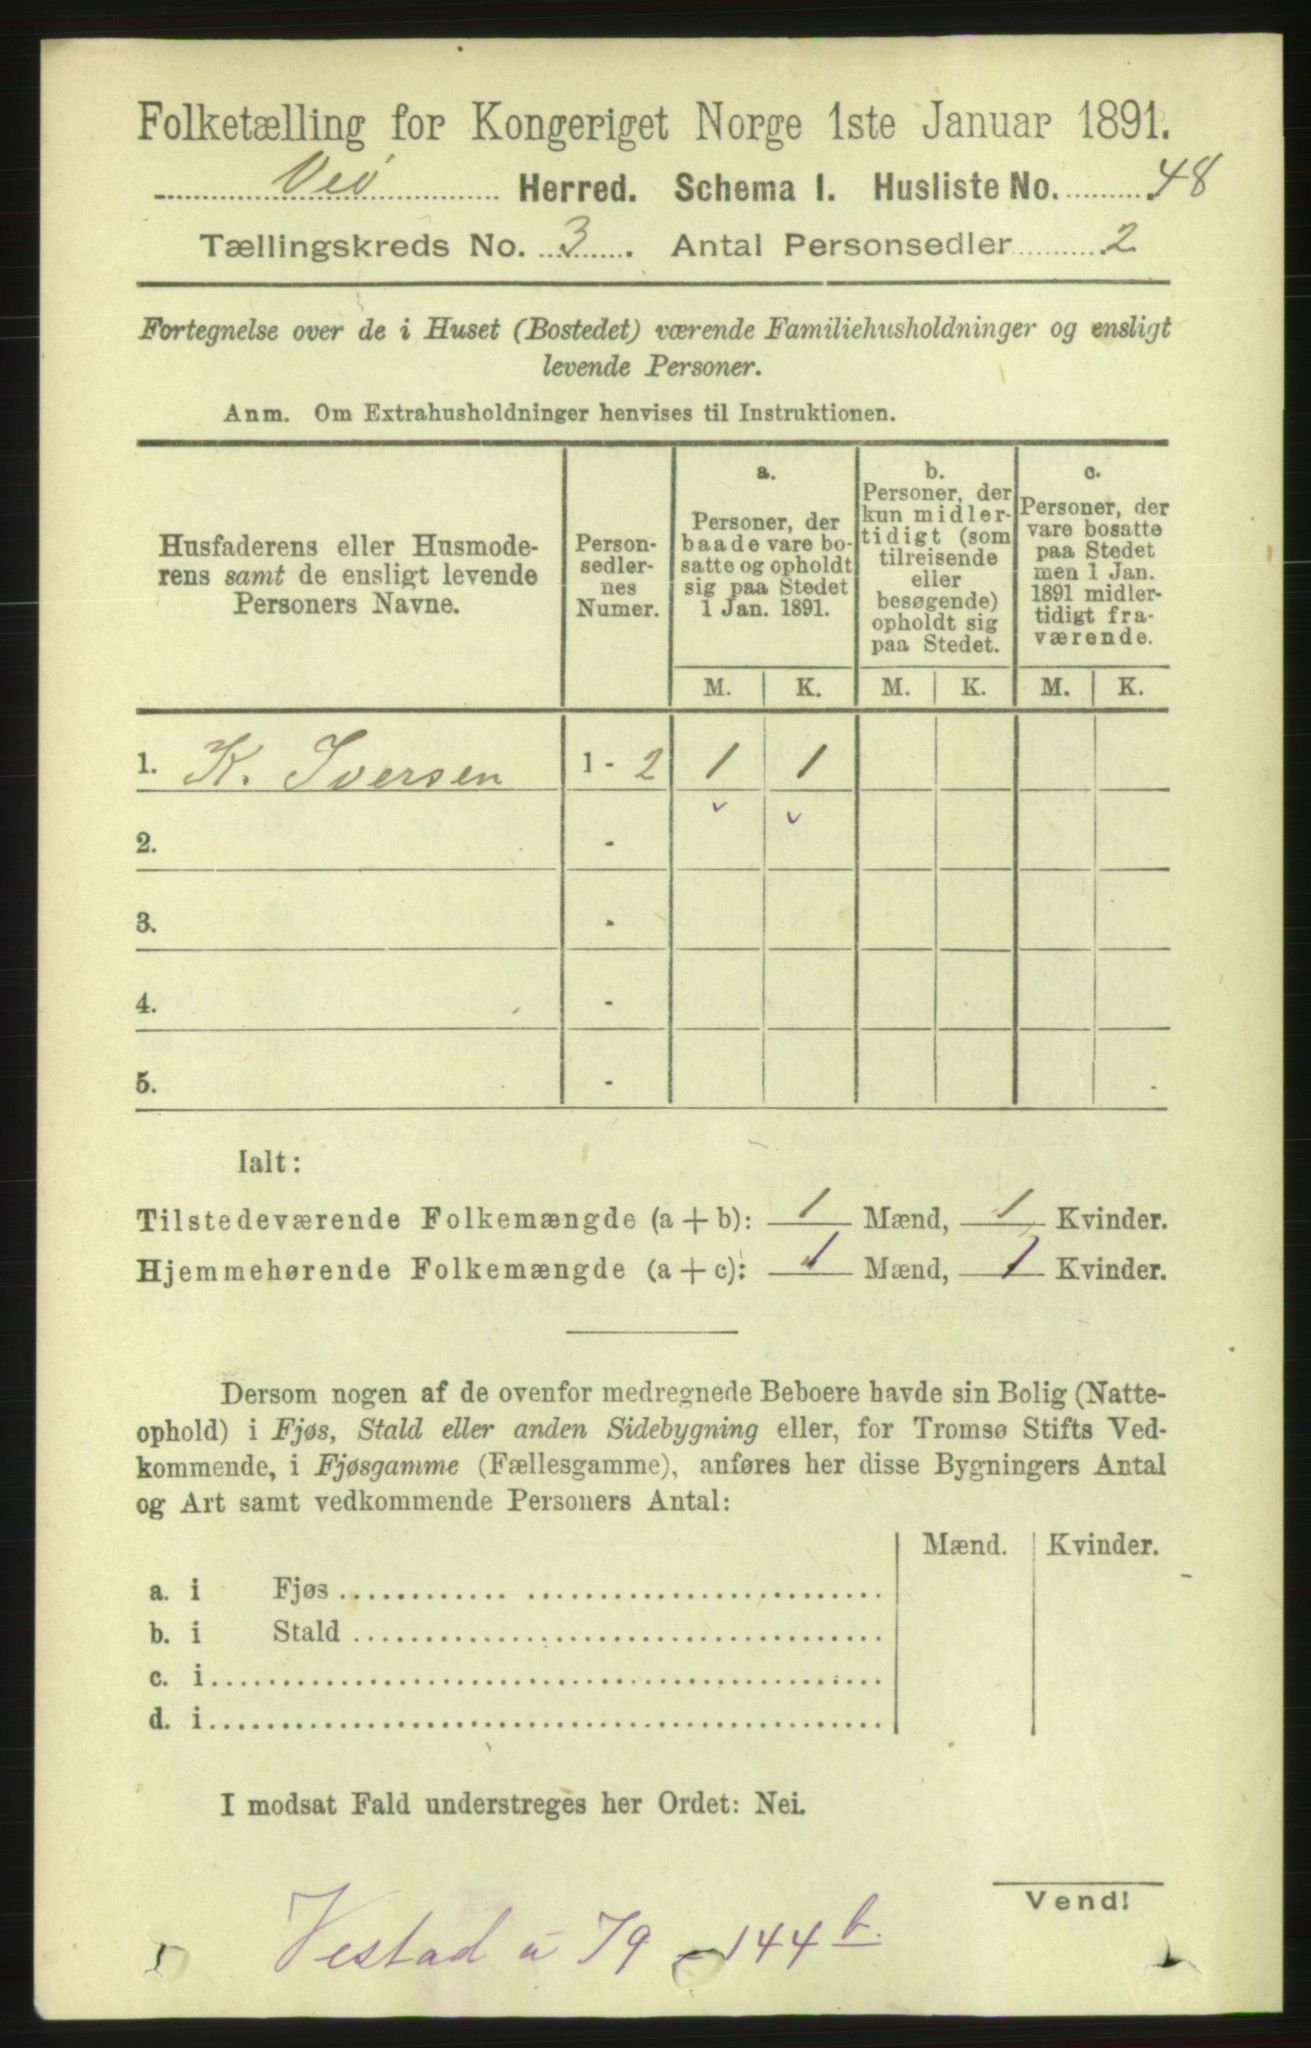 Folketælling for Kongeriget Norge 1ste Januar 1891.
Veø Herred. Schema I. Husliste No. 48
Tællingskreds No. 3. Antal Personsedler 2
Fortegnelse over de i Huset (Bostedet) værende Familiehusholdninger og ensligt
levende Personer.
Anm. Om Extrahusholdninger henvises til Instruktionen.
Husfaderens eller Husmode-
rens samt de ensligt levende
Personers Navne.
Person-
sedler-
nes
Numer.
a.
Personer, der
baade vare bo-
satte og opholdt
sig paa Stedet
1 Jan. 1891.
b.
Personer, der
kun midler-
tidigt (som
tilreisende
eller
besøgende)
opholdt sig
paa Stedet.
c.
Personer, der
vare bosatte
paa Stedet
men 1 Jan.
1891 midler-
tidigt fra-
værende.
M. K. M. K. M. K.
1. K. Iversen 1 - 2 1 1
2. -
3. -
4. -
5. -
Ialt:
Tilstedeværende Folkemængde (a + b): 1 Mænd, 1 Kvinder.
Hjemmehørende Folkemængde (a + c): 1 Mænd, 1 Kvinder.
Dersom nogen af de ovenfor medregnede Beboere havde sin Bolig (Natte-
ophold) i Fjøs, Stald eller anden Sidebygning eller, for Tromsø Stifts Ved-
kommende, i Fjøsgamme (Fællesgamme), anføres her disse Bygningers Antal
og Art samt vedkommende Personers Antal:
Mænd. Kvinder.
a. i Fjøs
b. i Stald
c. i
d. i
I modsat Fald understreges her Ordet: Nei.
Vend!
Vestad u 79 - 144 b.